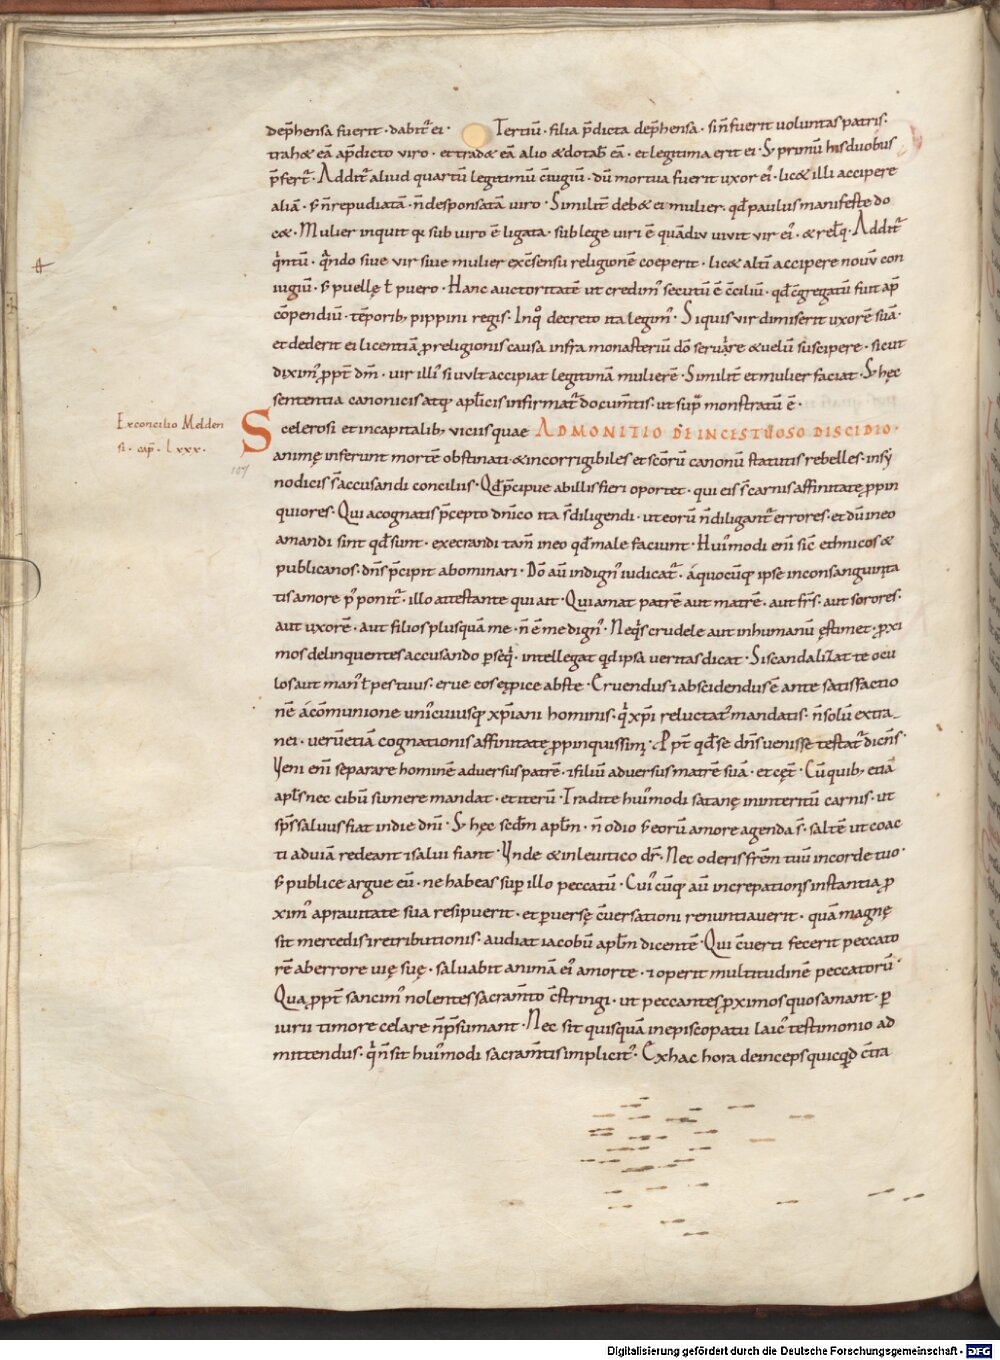 dep̄hensa fuerit · dabit᷑ ei · Tertiū · filia p̄dicta dep̄hensa · sin̄ fuerit uoluntas patris ·
trah& eā ap̄dicto viro · et trad& eā alio &dotab̄ eā · et legitima erit ei · S; primū his duobus
p̄fert᷑ · Addit᷑ aliud quartū legitimū c̄iugiū · dū mortua fuerit uxor ei᷒ · lic& illi accipere
aliā · s; n̄ repudiatā · n̄ desponsatā uiro · Similit̄ deb& ei mulier · qd̄ paulus manifeste do
c& · Mulier inquit q̨ sub uiro ē ligata · sub lege uiri ē quādiu uiuit uir ei᷒ · & rel̄q · Addit᷑
q̍ntū · q̍ndo siue uir siue mulier ex c̄sensu religionē coeperit · lic& alt̄i accipere nouū con
iugiū · s; puellę ł puero · Hanc auctoritatē ut credim᷒ secutū ē c̄ciliū · qd̄ c̄gregatū fuit ap̄
cōpendiū · tēporib; pippini regis · In q᷒ decreto ita legim᷒ · Siquis uir dimiserit uxorē suā ·
et dederit ei licentiā p̱ religionis causa infra monasteriū dō seruire & uelū suscipere · sicut
dixim᷒ p̱pt̄ dm̄ · uir illi᷒ si uult accipiat legitimā mulierē · Similit̄ et mulier faciat · S; hęc
sententia canonicis atq; apl̄icis infirmat᷑ docum̄tis · ut sup᷑ monstratū ē ·
Ex concilio Melden
si · cap̄ · lxxx ·
107
Scelerosi et in capitalib; uiciis quae ADMONITIO DE INCESTUOSO DISCIDIO ·
animę inferunt mortē obstinati · & incorrigibiles et scōrū canonū statutis rebelles · in sy
nodicis s̄ accusandi conciliis · Qd̄ p̄cipue ab illis fieri oportet · qui eis s̄ carnis affinitate p̱pin
quiores · Qui a cognatis p̄cepto dn̄ico ita s̄ diligendi · ut eorū n̄ diligant᷑ errores · et dū in eo
amandi sint qd̄ sunt · execrandi tam̄ in eo qd̄ male faciunt · Hui᷒modi eni sic̄ ethnicos &
publicanos · dn̄s p̄cipit abominari · Dō aū indign᷒ iudicat᷑ · a quocūq; ipse in consanguinita
tis amore p᷒ponit᷑ · illo attestante qui ait · Qui amat patrē aut matrē · aut frs̄ · aut sorores ·
aut uxorē · aut filios plusquā me · n̄ ē me dign᷒ · Neq̍s crudele aut inhumanū ęstimet · p̱xi
mos delinquentes accusando p̱seq̍ · intellegat qd̄ ipsa ueritas dicat · Si scandalizat te ocu
lus aut man᷒ ł pes tuus · erue eos et p̱ice abs te · Eruendus ⁊ abscidendus ē ante satisfactio
nē a cōmunione uniuscuiusq; xp̄iani hominis · q̍ xp̄i reluctat᷑ mandatis · n̄ solū extra
nei · uerū etiā cognationis affinitate p̱pinquissim᷒ · Ppt̄ qd̄ se dn̄s uenisse testat᷑ dicn̄s ·
Veni eni separare hominē aduersus patrē · ⁊ filiū aduersus matrē suā · et cęt̄ · Cū quib; etiā
apl̄s nec cibū sumere mandat · et iterū · Tradite hui᷒modi satanę in interitū carnis · ut
sp̄s saluus fiat in die dn̄i · S; hęc scdm̄ apl̄m · n̄ odio s; eorū amore agenda s̄ · saltē ut coac
ti ad uiā redeant ⁊ salui fiant · Vnde & in leuitico dr̄ · Nec oderis fr̄em tuū in corde tuo ·
s; publice argue eū · ne habeas sup̱ illo peccatū · Cui᷒cūq; aū increpationis instantia p̱
xim᷒ a prauitate sua resipuerit · et p̱uersę c̄uersationi renuntiauerit · quā magnę
sit mercedis ⁊ retributionis · audiat iacobū apl̄m dicentē · Qui c̄uerti fecerit peccato
rē ab errore uię suę · saluabit animā ei᷒ a morte · ⁊ operit multitudinē peccatorū ·
Qua p̱pt̄ sancim᷒ nolentes sacram̄to c̄stringi · ut peccantes p̱ximos quos amant · p̱
iurii timore celare n̄ p̄sumant · Nec sit quisquā in episcopatu laic᷒ testimonio ad
mittendus · q̍ n̄ sit hui᷒modi sacram̄tis implicit᷒ · Ex hac hora deinceps quicqd̄ c̄tra
Digitalisierung gefördert durch die Deutsche Forschungsgemeinschaft - DFG